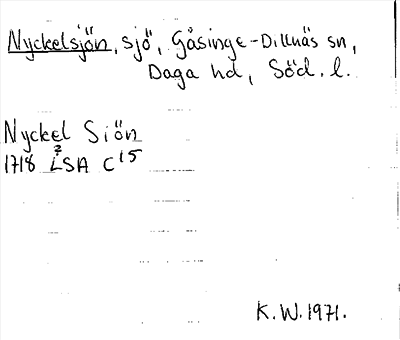 Nyckelsjön, sjö, Gåsinge-Dillnäs sn,
Daga hd, Söd. l.
Nyckel Siön
1718 LSA C 15
K.W. 1971.